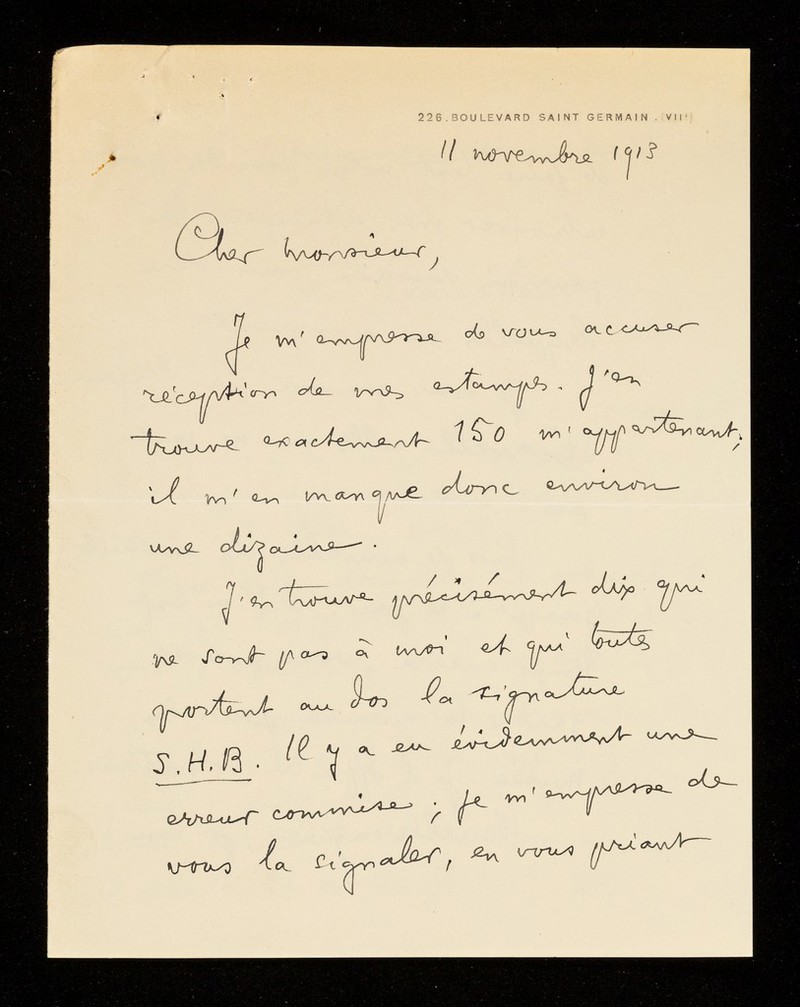 226. BOULEVARD SAINT GERMAIN. (VIIᵉ)
11 novembre 1913
Cher monsieur,
Je m'empresse de vous accuser
réception de mes estampes. J'en
trouve exactement 150 m'appartenant;
il m'en manque donc environ
une dizaine.
J'en trouve précisément dix qui
ne sont pas à moi et qui toutes
portent au dos la signature
S.H.B. Il y a eu évidemment une
erreur commise ; je m'empresse de
vous la signaler, en vous priant